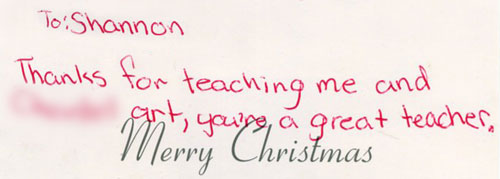 To: Shannon
Thanks for teaching me and
art, you're a great teacher.
Merry Christmas